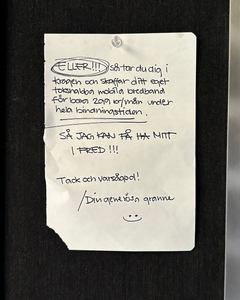 ELLER!!! så tar du dig i
kragen och skaffar ditt eget
toksnabba mobila bredband
för bara 2019 kr/mån under
hela bindningstiden.
SÅ JAG KAN FÅ HA MITT
I FRED !!!
Tack och varsågod!
/Din generösa granne